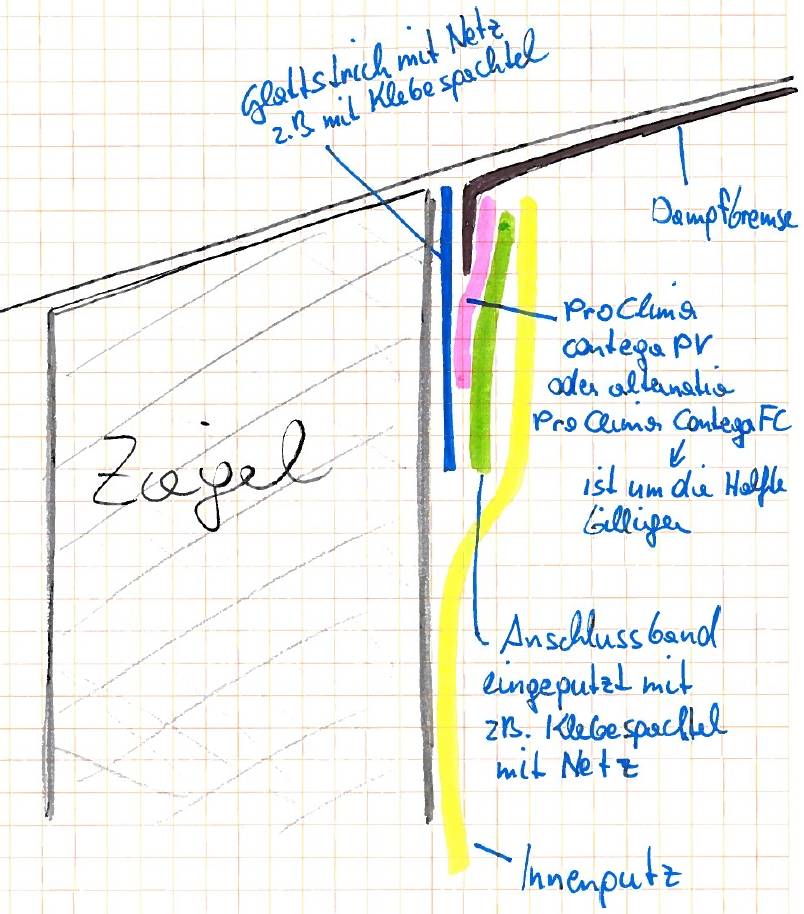 Glattstrich mit Netz
z.B mit Klebespachtel
Dampfbremse
Pro Clima
contega PV
oder alternativ
Pro Clima Contega FC
ist um die Hälfte
billiger
Ziegel
Anschlussband
eingeputzt mit
zB. Klebespachtel
mit Netz
Innenputz